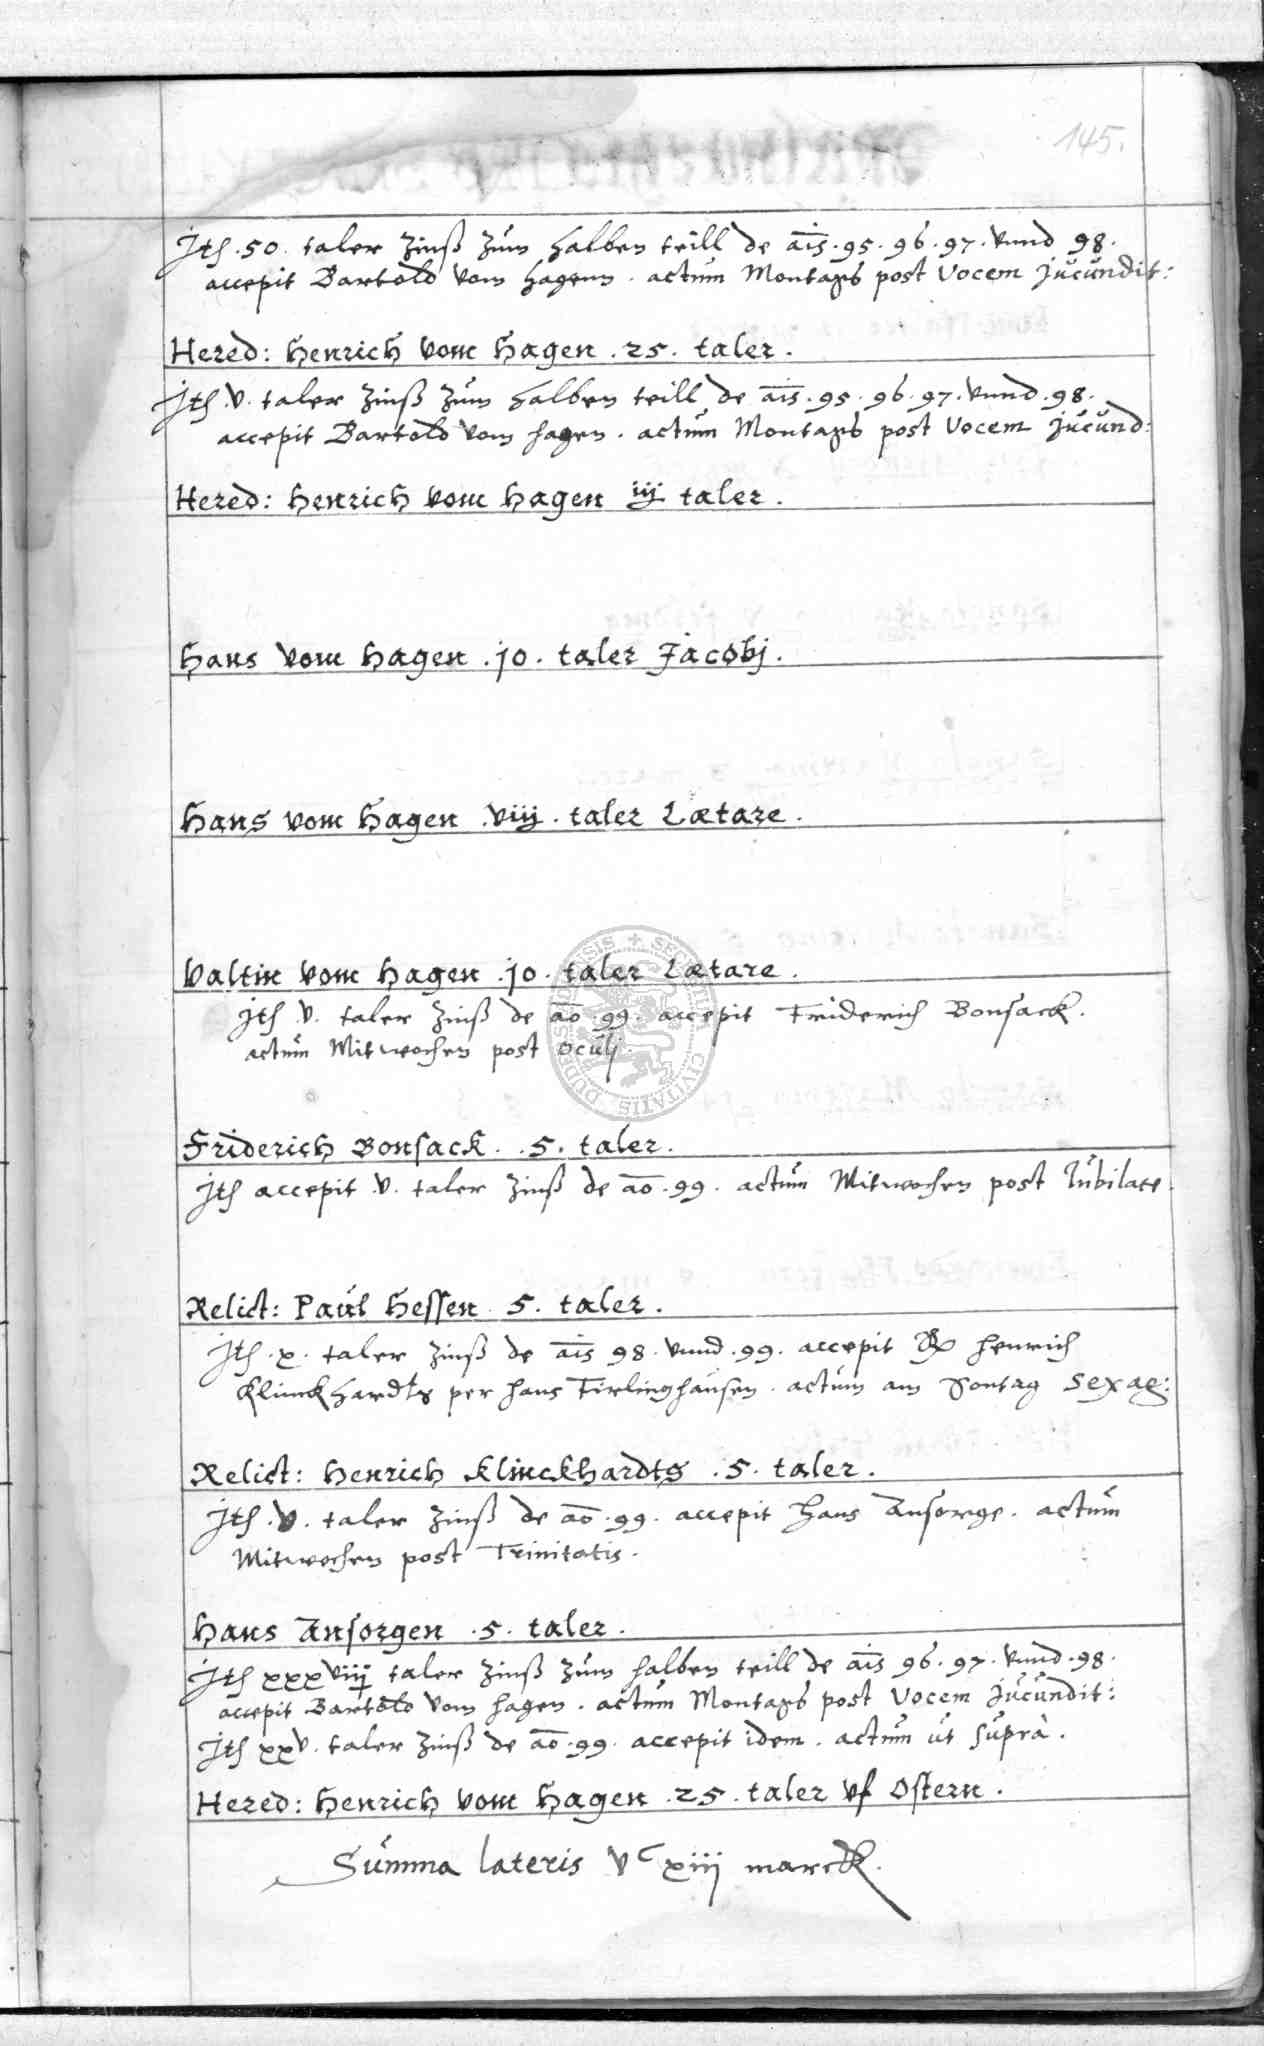 145.
Jth .50. taler Zinß zum halben teill de ais .95. 96. 97. vnnd 98.
accepit Bartold vom hagenn. actum Montags post Vocem jucundit:
Hered: Henrich vom Hagen .25. taler.
Jth .v. taler Zinß zum halben teill de ais .95. 96. 97. vnnd .98.
accepit Bartold vom hagen. actum Montags post Vocem jucund:
Hered: Henrich vom Hagen iij taler.
Hans vom Hagen .jo. taler Jacobj.
Hans vom Hagen .viij. taler Lætare.
Valtin vom Hagen .jo. taler Lætare.
Jth .v. taler Zinß de ao .99. accepit Friderich Bonsack.
actum Mitwochen post oculj.
Friderich Bonsack. .5. taler.
Jth accepit .v. taler Zinß de ao .99. actum Mitwochen post Jubilate.
Relict: Paul Hessen 5. taler.
Jth .x. taler Zinß de ais 98. vnnd .99. accepit Henrich
Klinckhardts per Hans Tirlinghausen. actum am Sontag Sexag:
Relict: Henrich Klinckhardts .5. taler.
Jth .v. taler Zinß de ao .99. accepit Hans Ansorge. actum
Mitwochen post Trinitatis.
Hans Ansorgen .5. taler.
Jth xxxviij taler Zinß zum halben teill de ais 96. 97. vnnd .98.
accepit Bartold vom hagen. actum Montags post Vocem jucundit:
Jth xxv. taler Zinß de ao .99. accepit idem. actum ut supra.
Hered: Henrich vom Hagen .25. taler vf Ostern.
Summa lateris vc xiij marck.
SIGILLUM CIVITATIS DUDERSTADENSIS